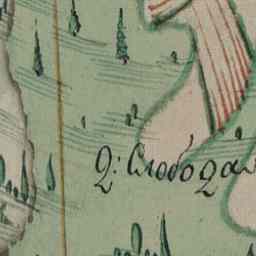 2: Слобода